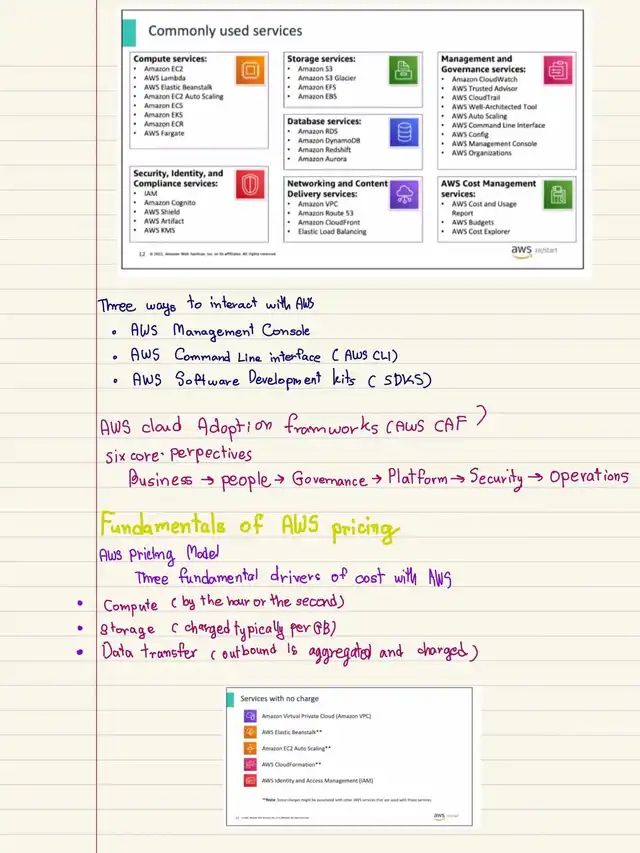 Commonly used services
Compute services:
• Amazon EC2
• AWS Lambda
• AWS Elastic Beanstalk
• Amazon EC2 Auto Scaling
• Amazon ECS
• Amazon EKS
• Amazon ECR
• AWS Fargate
Security, Identity, and
Compliance services:
• IAM
• Amazon Cognito
• AWS Shield
• AWS Artifact
• AWS KMS
Storage services:
• Amazon S3
• Amazon S3 Glacier
• Amazon EFS
• Amazon EBS
Database services:
• Amazon RDS
• Amazon DynamoDB
• Amazon Redshift
• Amazon Aurora
Networking and Content
Delivery services:
• Amazon VPC
• Amazon Route 53
• Amazon CloudFront
• Elastic Load Balancing
Management and
Governance services:
• Amazon CloudWatch
• AWS Trusted Advisor
• AWS CloudTrail
• AWS Well-Architected Tool
• AWS Auto Scaling
• AWS Command Line Interface
• AWS Config
• AWS Management Console
• AWS Organizations
AWS Cost Management
services:
• AWS Cost and Usage
Report
• AWS Budgets
• AWS Cost Explorer
12 © 2022, Amazon Web Services, Inc. or its affiliates. All rights reserved.
aws re/start
Three ways to interact with AWS
• AWS Management Console
• AWS Command Line interface (AWS CLI)
• AWS Software Development kits (SDKS)
AWS cloud Adoption framworks (AWS CAF)
six core. perpectives
Business → people → Governance → Platform → Security → Operations
Fundamentals of AWS pricing
AWS Pricing Model
Three fundamental drivers of cost with AWS
• Compute (by the hour or the second)
• Storage (charged typically per GB)
• Data transfer (outbound is aggregated and charged)
Services with no charge
Amazon Virtual Private Cloud (Amazon VPC)
AWS Elastic Beanstalk**
Amazon EC2 Auto Scaling**
AWS CloudFormation**
AWS Identity and Access Management (IAM)
**Note: Some charges might be associated with other AWS services that are used with these services.
aws re/start